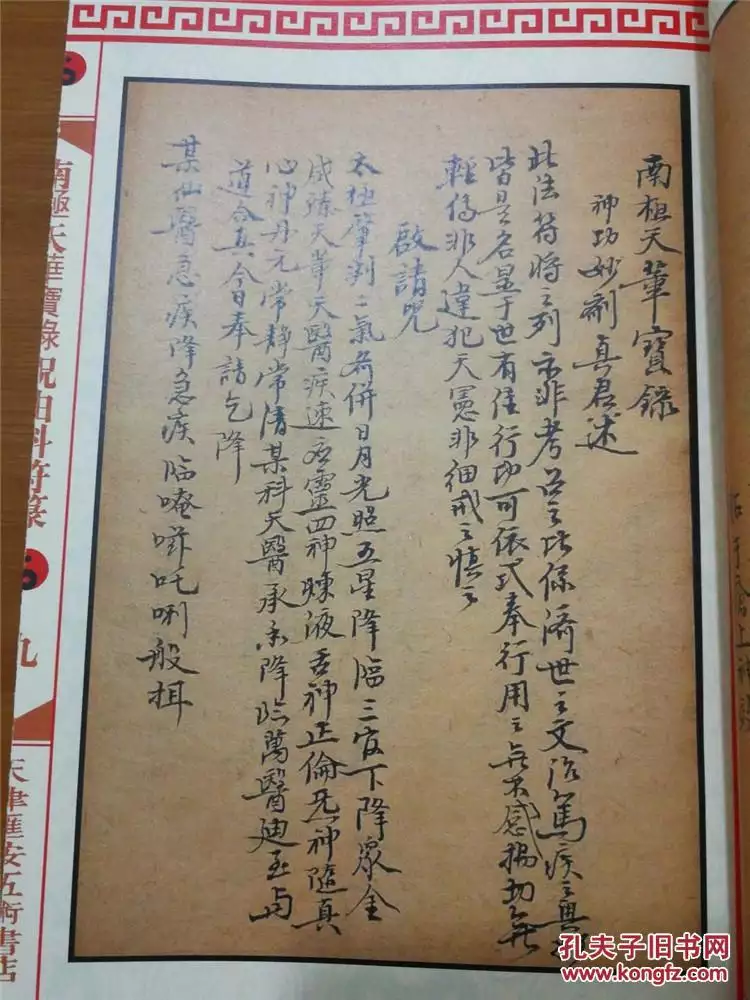 南極天華寶錄
神功妙劑真君述
此法符將之列亦非考召之比係濟世之文治篤疾之奧
皆是名显于世有佳行功可依式奉行用之無不感揚切無
輕傳非人違犯天憲非細戒之慎之
啟請咒
太極肇判二氣分併日月光照五星降臨三官下降衆全
咸臻天華天醫疾速分靈四神煉液舌神正倫死神隨真
心神丹元常静常清某科天醫承余降臨萬醫迪至与
道合真今日奉請乞降
某仙醫急疾降急疾临唵㗭吒唎般揖
南極天華寶錄祝由科符箓
九
天津匯安五術書店
孔夫子旧书网
www.kongfz.com